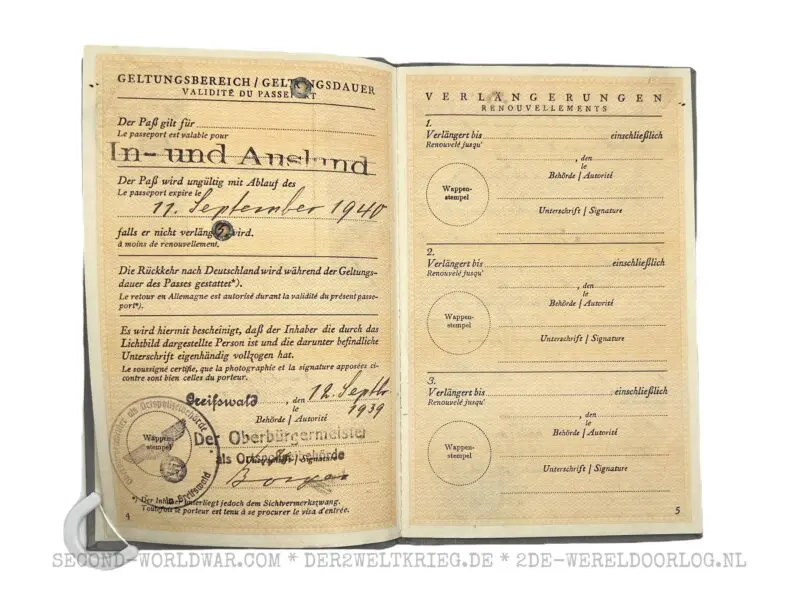 GELTUNGSBEREICH / GELTUNGSDAUER
VALIDITÉ DU PASSEPORT
Der Paß gilt für
Le passeport est valable pour
In- und Ausland
Der Paß wird ungültig mit Ablauf des
Le passeport expire le
11. September 1940
falls er nicht verlängert wird.
à moins de renouvellement.
Die Rückkehr nach Deutschland wird während der Geltungs-
dauer des Passes gestattet*).
Le retour en Allemagne est autorisé durant la validité du présent passe-
port*).
Es wird hiermit bescheinigt, daß der Inhaber die durch das
Lichtbild dargestellte Person ist und die darunter befindliche
Unterschrift eigenhändig vollzogen hat.
Le soussigné certifie, que la photographie et la signature apposées ci-
contre sont bien celles du porteur.
Greifswald, den 12. Septbr
le 1939
Behörde / Autorité
Wappen-
stempel
Der Oberbürgermeister
als Ortspolizeibehörde
Unterschrift / Signature
als Ortspolizeibehörde
in Greifswald
*) Der Inhaber unterliegt jedoch dem Sichtvermerkszwang.
Toutefois le porteur est tenu à se procurer le visa d'entrée.
4
VERLÄNGERUNGEN
RENOUVELLEMENTS
1.
Verlängert bis einschließlich
Renouvelé jusqu'
, den
le
Behörde / Autorité
Wappen-
stempel
Unterschrift / Signature
2.
Verlängert bis einschließlich
Renouvelé jusqu'
, den
le
Behörde / Autorité
Wappen-
stempel
Unterschrift / Signature
3.
Verlängert bis einschließlich
Renouvelé jusqu'
, den
le
Behörde / Autorité
Wappen-
stempel
Unterschrift / Signature
5
SECOND-WORLDWAR.COM * DER2WELTKRIEG.DE * 2DE-WERELDOORLOG.NL